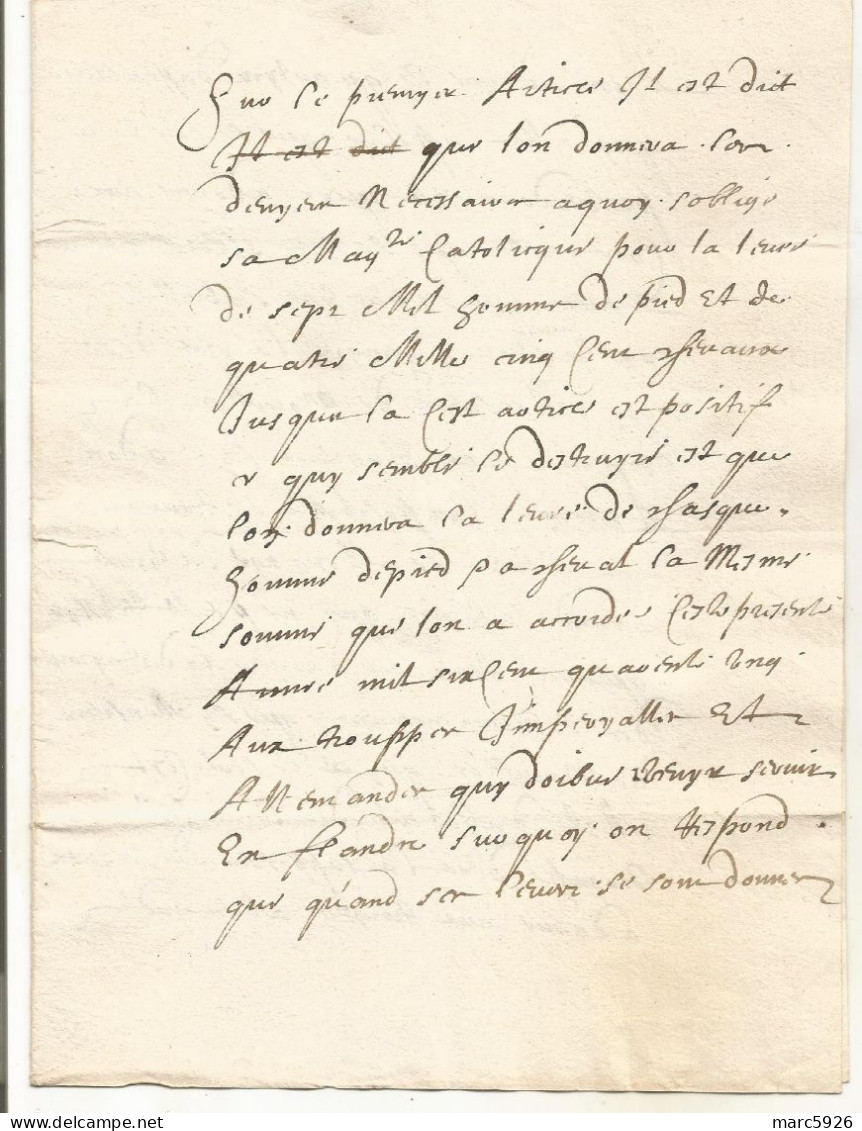 Sur le premyer Article Il est dict
Il est dict que lon donnera les
denyers Necessaires a quoy soblige
sa Mayte Catolicque pour la levee
de sept Mil homme de pied Et de
quatre Mille cinq Cens chevaux
Jusques la Cest article est positif
quy semble le destruyre est que
lon donnera la levee de chasque
homme de pied a cheval la mesme
somme que lon a accordee Ceste presente
Annee mil six Cens quarente Ung
Aux trouppes Imperyalles Et
Allemandes quy doibve venyr servir
En flandre sur quoy on Respond
que quand ses levees se sont donnees
marc5926